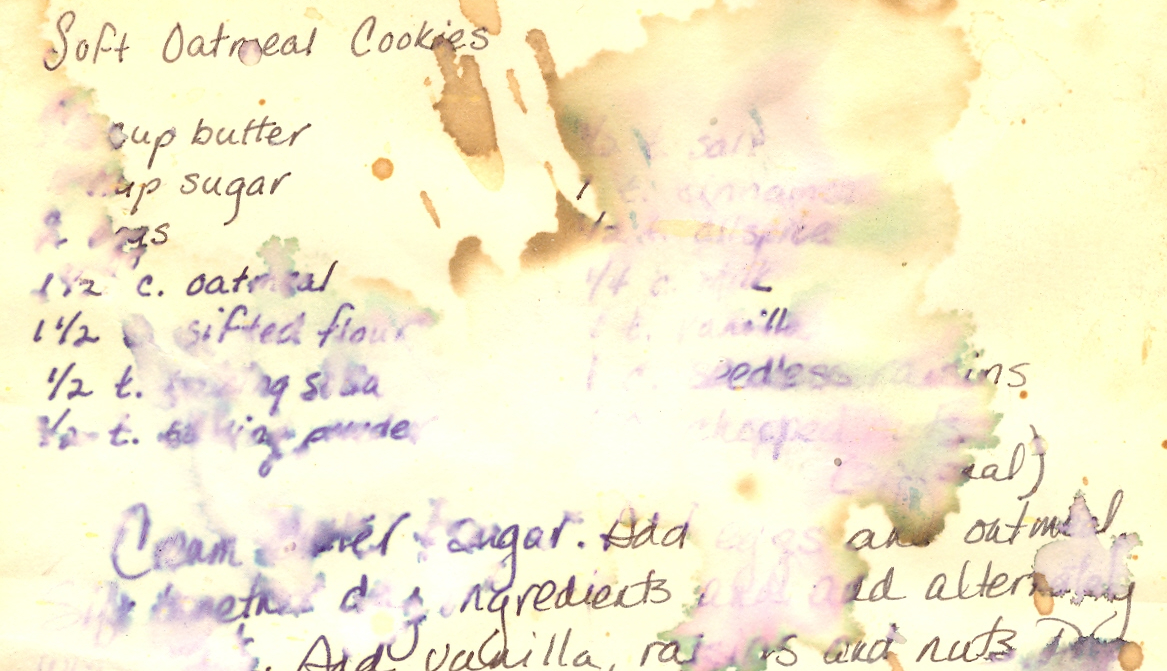 Soft Oatmeal Cookies
cup butter
sugar
1 1/2 c. oatmeal
1 1/2 sifted flour
1/2 t. baking soda
1/2 t. baking powder
salt
1 t. cinnamon
allspice
1/4 c. milk
t. vanilla
1 c. seedless raisins
chopped
Cream butter sugar. Add eggs and oatmeal.
Sift together dry ingredients and add alternately
. Add vanilla, raisins and nuts